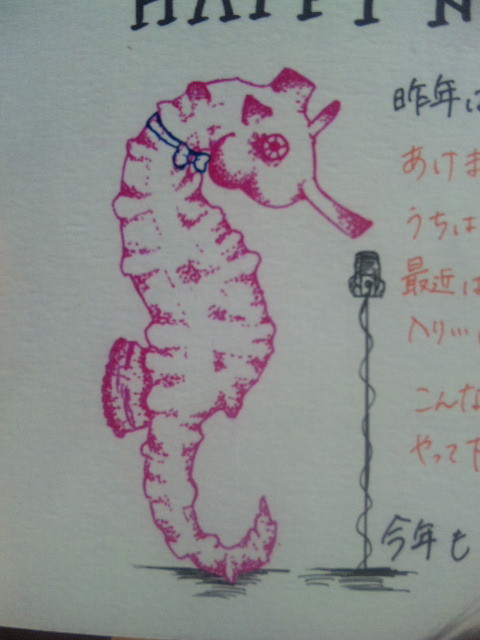 HAPPY N
昨年は
あけま
うちは
最近は
入り…
こんな
やって下
今年も